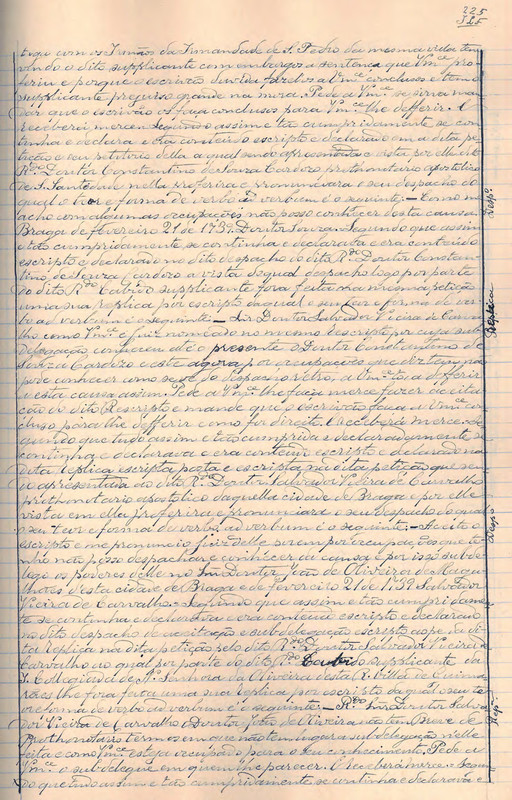 225
315
tiga com os Irmãos da Irmandade de S. Pedro da mesma villa tem
vindo o dito supplicante com embargos a sentença que Vm.ce pro
feriu e porque o escrivão duvida fazelos a Vm.ce conclusos e tem o
supplicante prejuizo grande na mora. Pede a Vm.ce se sirva man
dar que o escrivão os faça conclusos para Vm.ce lhe defferir. E
receberá mercê. Segundo o assim e tão cumpridamente se con
tinha e declara e era conteudo escripto e declarado em a dita pe
tição e seu petitorio della a qual sendo apresentada e vista por elle dito
R.do Doutor Constantino de Souza Cardozo prothonotario apostolico
de S. Santidade nella proferira e pronunciara o seu despacho do
qual o teor e forma de verbo ad verbum é o seguinte. — Como me
acho com algumas occupações não posso conhecer desta causa.
Braga de fevereiro 21 de 1739. Doutor Souza. Segundo que assim
e tão cumpridamente se continha e declarava e era conteudo
escripto e declarado no dito despacho do dito R.do Doutor Constan
tino de Souza Cardozo a vista do qual despacho logo por parte
do dito R.do Cabido supplicante fora feita na mesma petição
uma sua replica por escripto da qual o seu teor e forma de ver
bo ad verbum é o seguinte — Snr. Doutor Salvador Vieira de Carva
lho como Vm.ce é juiz nomeado no mesmo Rescripto por cuja sub
delegação conheceu até o presente o Doutor Constantino de
Souza Cardozo e este agora por occupações que diz tem não
pode conhecer como se vê do despacho retro, a Vm.ce toca defferir
nesta causa assim. Pede a Vm.ce lhe faça mercê fazer acceita
ção do dito Rescripto e mande que o escrivão faça a Vm.ce con
cluso para lhe defferir como for direito. E receberá mercê. Se
gundo que tudo assim e tão cumprida e declaradamente se
continha e declarava e era conteudo escripto e declarado na
dita replica escripta posta e escripta na dita petição que sen
do apresentada ao dito R.do Doutor Salvador Vieira de Carvalho
prothonotario apostolico daquella cidade de Braga e por elle
vista em ella proferira e pronunciara o seu despacho do qual
o seu teor e forma de verbo ad verbum é o seguinte. — Acceito o
escripto e me pronuncio juiz delle sirem por occupações que te
nho não posso despachar e conhecer da causa e por isso subde
lego os poderes delle no Snr. Doutor João de Oliveira de Maga
lhães desta cidade de Braga e de fevereiro 21 de 1739. Salvador
Vieira de Carvalho. Segundo que assim e tão cumpridamen
te se continha e declarava e era conteudo escripto e declarado
no dito despacho de acceitação e subdelegação escripto ao pe da di
ta replica na dita petição pelo dito R.do Doutor Salvador Vieira de
Carvalho no qual por parte do dito R.do Cabido supplicante da
S. Collegiada de N. Senhora da Oliveira desta R. villa de Guima
rães lhe fora feita uma sua replica por escripto da qual o seu te
or e forma de verbo ad verbum é o seguinte — R.do Snr. Doutor Salva
dor Vieira de Carvalho o Doutor João de Oliveira não tem Breve de
Prothonotario termos em que não tem lugar a subdelegação n'elle
feita e como Vm.ce esteja occupado para o seu conhecimento. Pede a
Vm.ce o subdelegue em quem lhe parecer. E receberá mercê. Segun
do que tudo assim e tão cumpridamente se continha e declarava e
Desp.º
Replica
Desp.º
Repp.ª